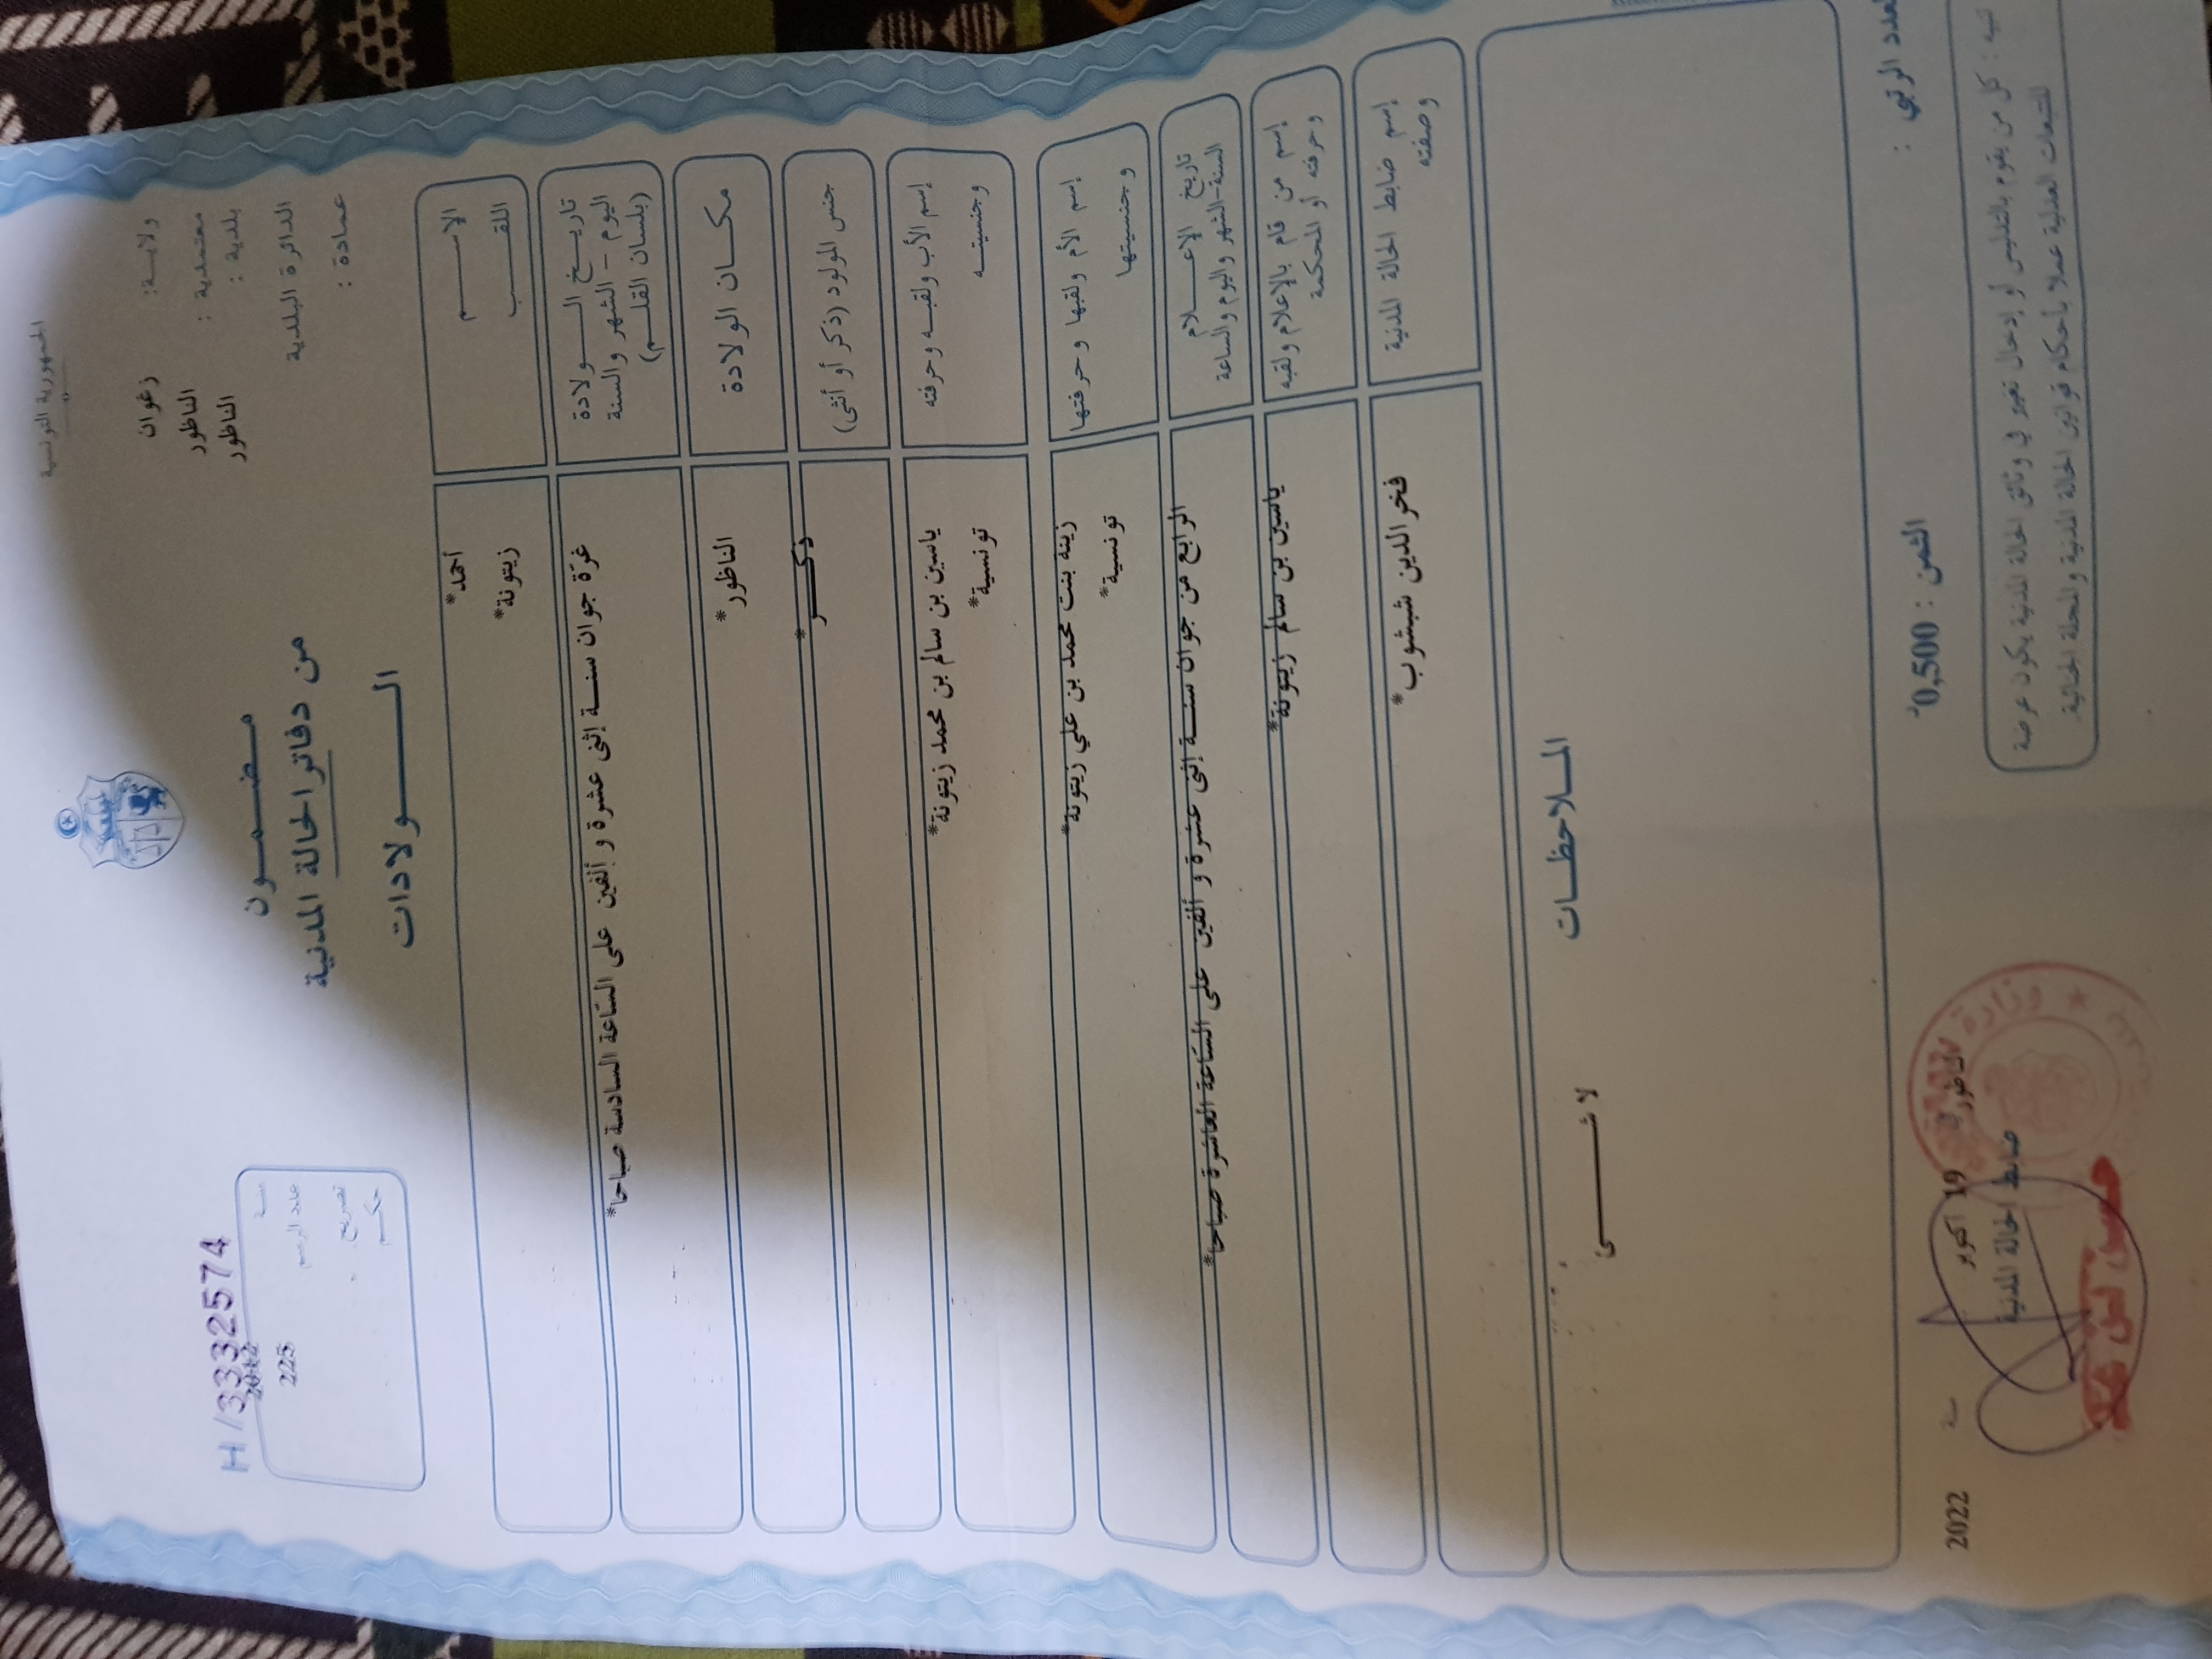 الجمهورية التونسية
ولايـــة: زغوان
معتمدية : الناظور
بلدية : الناظور
الدائرة البلدية
عمادة :
H/3332574
سنة 2012
عدد الرسم 225
تصريح
حكـــم
مضـمـــون
من دفاتر الحالة المدنية
الـــــولادات
الاســـــم أحمد*
اللقـــــب زيتونة*
تاريـــخ الـــــولادة
اليوم - الشهر والسنة
(بلسان القلـــم)
غرّة جوان سنـــة إثنى عشرة و ألفين على السّاعة السادسة صباحا*
مكـــان الولادة الناظور*
جنس المولود (ذكر أو أنثى) ذكـــــر*
إسم الأب ولقبـــه وحرفته ياسين بن سالم بن محمد زيتونة*
وجنسيتـــه تونسية*
إسم الأم ولقبها وحرفتها زينة بنت محمد بن علي زيتونة*
وجنسيتها تونسية*
تاريخ الإعـــــلام
السنة-الشهر واليوم والساعة
الرابع من جوان سنـــة إثنى عشرة و ألفين على السّاعة العاشرة صباحا*
إسم من قام بالإعلام ولقبه
وحرفته أو المحكمة
ياسين بن سالم زيتونة*
إسم ضابط الحالة المدنية
وصفته
فخر الدين شبشوب*
المـــلاحظـــات
لا شـــــــئ
العدد الرتبي :
الثمن : 0,500د
الناظور في 19 أكتوبر سنة 2022
ضابط الحالة المدنية
وزارة
تنبيه : كل من يقوم بالتدليس أو إدخال تغيير في وثائق الحالة المدنية يكون عرضة
للتتبعات العدلية عملا بأحكام قوانين الحالة المدنية والمجلة الجنائية.